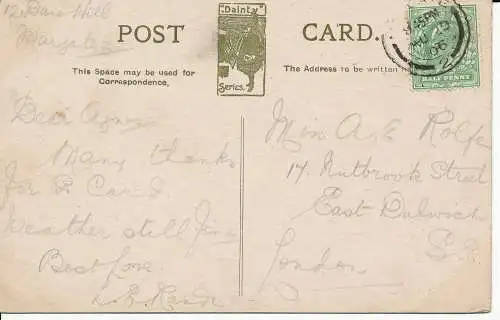 12 Dane Hill
Margate
POST
CARD.
Dainty
Series.
This Space may be used for
Correspondence.
The Address to be written
HALF PENNY
Dear Agnes
Many thanks
for P. Card
Weather still fine
Best love
Miss A. E. Rolfe
17. Nutbrook Street
East Dulwich
S.E.
London